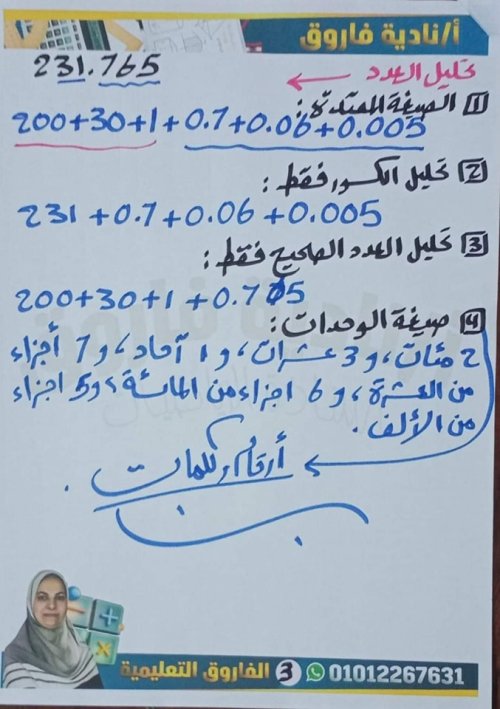 أ/نادية فاروق
231.765
تحليل العدد ←
1 الصيغة الممتدة:
200+30+1+0.7+0.06+0.005
2 تحليل الكسور فقط:
231+0.7+0.06+0.005
3 تحليل العدد الصحيح فقط:
200+30+1+0.765
4 صيغة الوحدات:
2 مئات، و3 عشرات، و1 آحاد، و7 أجزاء
من العشرة، و6 اجزاء من المائة، و5 اجزاء
من الألف.
أرقام وكلمات ←
01012267631 3 الفاروق التعليمية